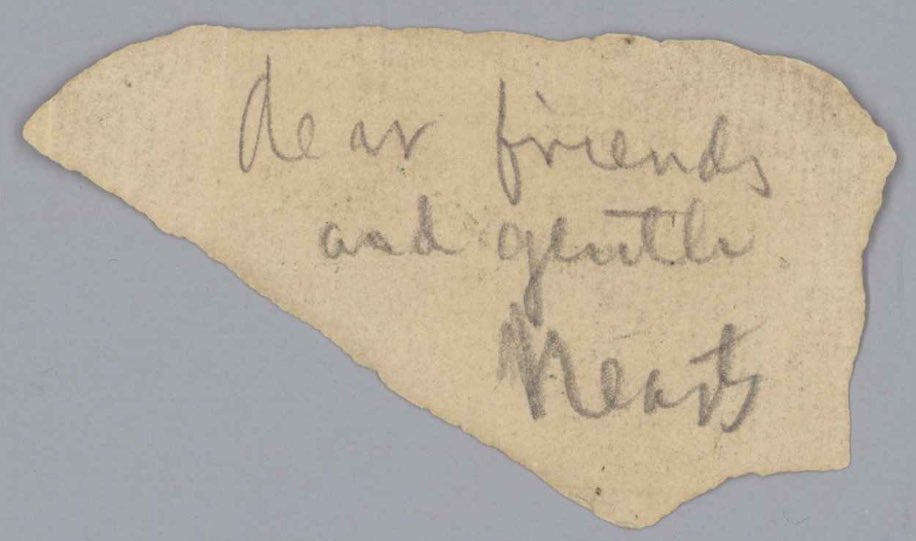 dear friends
and gentle
hearts